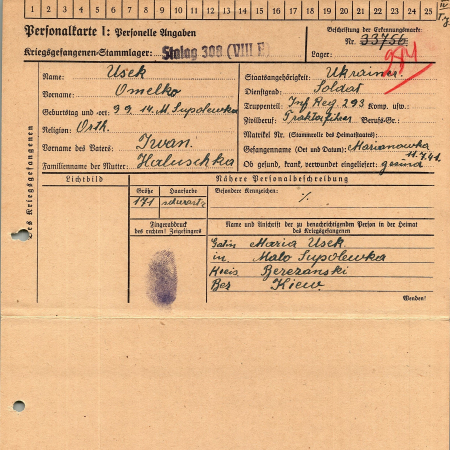 1 2 3 4 5 6 7 8 9 10 11 12 13 14 15 16 17 18 19 20 21 22 23 24 25
Personalkarte I: Personelle Angaben
Kriegsgefangenen-Stammlager: Stalag 308 (VIII E)
Beschriftung der Erkennungsmarke:
Nr. 33756
Lager:
Des Kriegsgefangenen
Name: Usek
Vorname: Omelko
Geburtstag und -ort 9.9.14. M. Supolewka
Religion: Orth.
Vorname des Vaters: Iwan.
Familienname der Mutter: Haluschka
Staatsangehörigkeit: Ukrainer.
Dienstgrad: Soldat
Truppenteil: Inf Reg 293 Komp. usw.:
Zivilberuf: Berufs-Gr.:
Matrikel Nr. (Stammrolle des Heimatstaates):
Gefangennahme (Ort und Datum): Marianowka
11.7.41.
Ob gesund, krank, verwundet eingeliefert: gesund
Lichtbild
Nähere Personalbeschreibung
Größe
Haarfarbe
Besondere Kennzeichen:
171
schwarz
%
Fingerabdruck
des rechten! Zeigefingers
Name und Anschrift der zu benachrichtigenden Person in der Heimat
des Kriegsgefangenen
Gatin Maria Usek
in Malo Supolewka
Kreis Berezanski
Bez Kiew
Wenden!